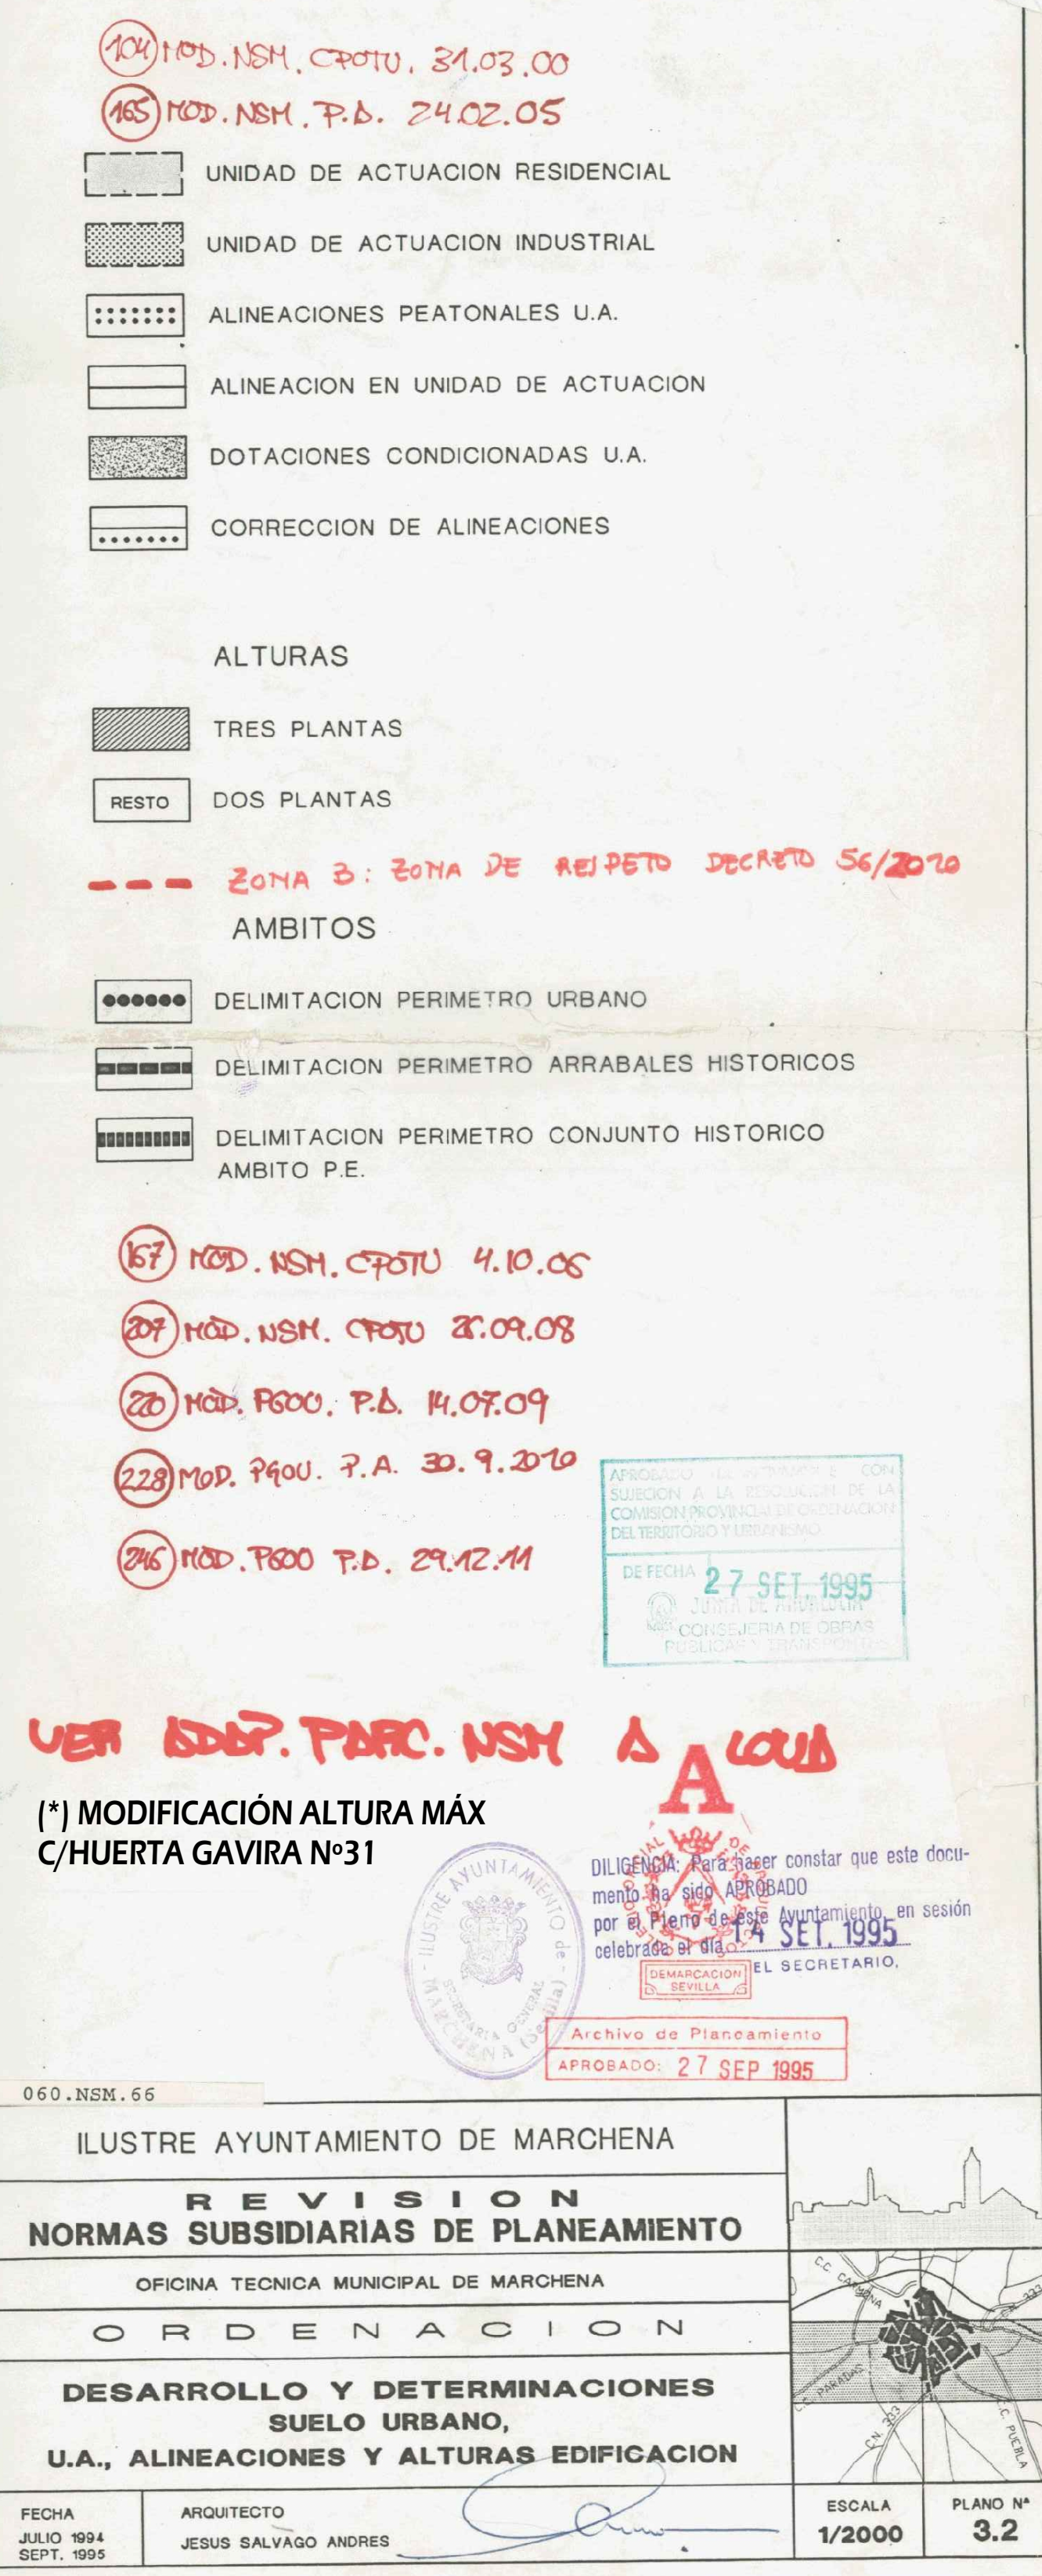 104 MOD. NSM. CPOTU. 31.03.00
165 MOD. NSM. P.A. 24.02.05
UNIDAD DE ACTUACION RESIDENCIAL
UNIDAD DE ACTUACION INDUSTRIAL
ALINEACIONES PEATONALES U.A.
ALINEACION EN UNIDAD DE ACTUACION
DOTACIONES CONDICIONADAS U.A.
CORRECCION DE ALINEACIONES
ALTURAS
TRES PLANTAS
RESTO DOS PLANTAS
ZONA 3: ZONA DE RESPETO DECRETO 56/2010
AMBITOS
DELIMITACION PERIMETRO URBANO
DELIMITACION PERIMETRO ARRABALES HISTORICOS
DELIMITACION PERIMETRO CONJUNTO HISTORICO
AMBITO P.E.
167 MOD. NSM. CPOTU 4.10.06
207 MOD. NSM. CPOTU .09.08
220 MOD. PGOU. P.A. 14.07.09
228 MOD. PGOU. P.A. 30.9.2010
246 MOD. PGOU P.A. 29.12.11
APROBADO CON
SUJECION A LA RESOLUCION DE LA
COMISION PROVINCIAL DE ORDENACION
DEL TERRITORIO Y URBANISMO
DE FECHA 27 SET. 1995
JUNTA DE ANDALUCIA
CONSEJERIA DE OBRAS
PUBLICAS Y TRANSPORTES
VER ADAP. PARC. NSM A LOUA
A
(*) MODIFICACIÓN ALTURA MÁX
C/HUERTA GAVIRA Nº31
ILUSTRE AYUNTAMIENTO de MARCHENA (Sevilla)
SECRETARIA GENERAL
DILIGENCIA: Para hacer constar que este docu-
mento ha sido APROBADO
por el Pleno de este Ayuntamiento, en sesión
celebrada el día 14 SET. 1995
EL SECRETARIO,
DEMARCACION
SEVILLA
Archivo de Planeamiento
APROBADO: 27 SEP 1995
060.NSM.66
ILUSTRE AYUNTAMIENTO DE MARCHENA
REVISION
NORMAS SUBSIDIARIAS DE PLANEAMIENTO
OFICINA TECNICA MUNICIPAL DE MARCHENA
ORDENACION
DESARROLLO Y DETERMINACIONES
SUELO URBANO,
U.A., ALINEACIONES Y ALTURAS EDIFICACION
C.C. CARMONA
C.N. 333
C.C. PARADAS
C.N. 333
C.C. PUEBLA
FECHA
JULIO 1994
SEPT. 1995
ARQUITECTO
JESUS SALVAGO ANDRES
ESCALA
1/2000
PLANO Nª
3.2